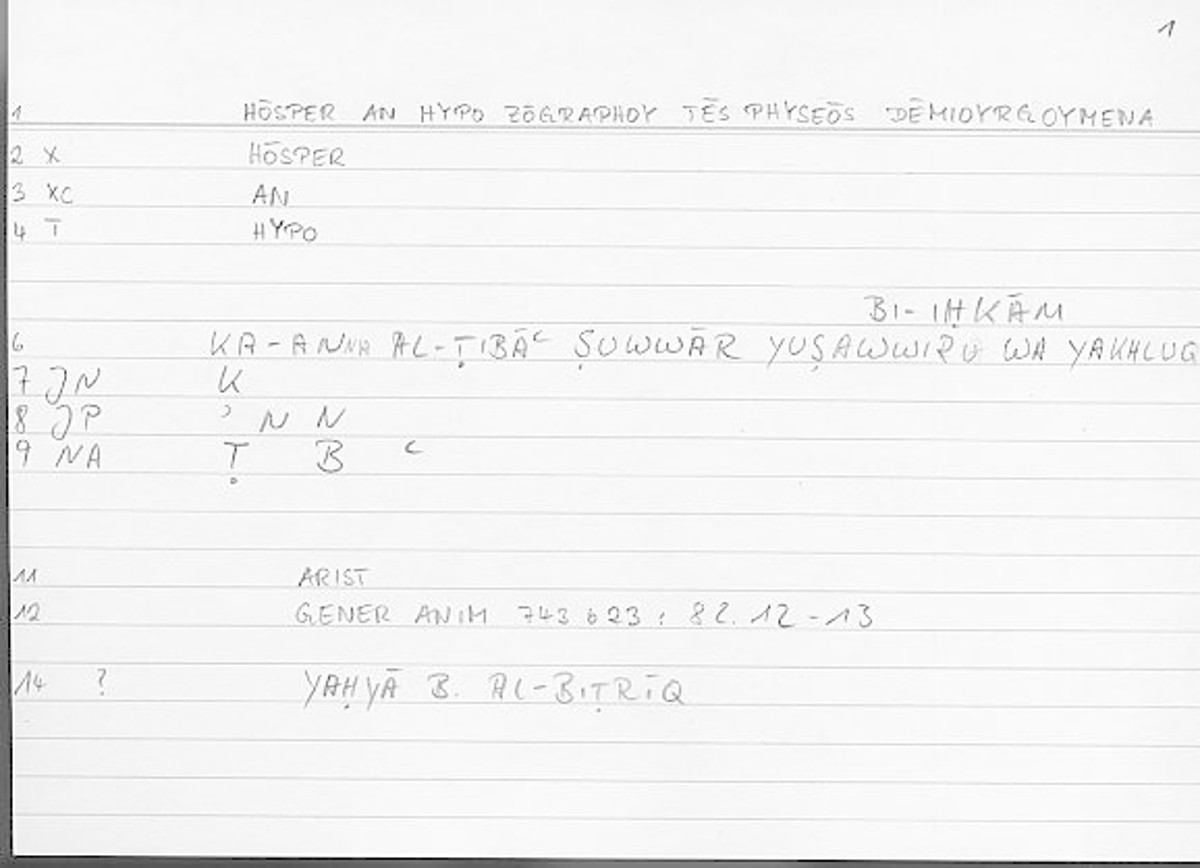 1
1 HŌSPER AN HYPO ZŌGRAPHOY TĒS PHYSEŌS DĒMIOYRGOYMENA
2 X HŌSPER
3 XC AN
4 T HYPO
BI-IḤKĀM
6 KA-ANNA AL-ṬIBĀʿ ṢUWWĀR YUṢAWWIRU WA YAKHLUQ
7 JN K
8 JP ʾ N N
9 NA Ṭ B ʿ
11 ARIST
12 GENER ANIM 743 b 23 : 82.12-13
14 ? YAḤYĀ B. AL-BIṬRĪQ